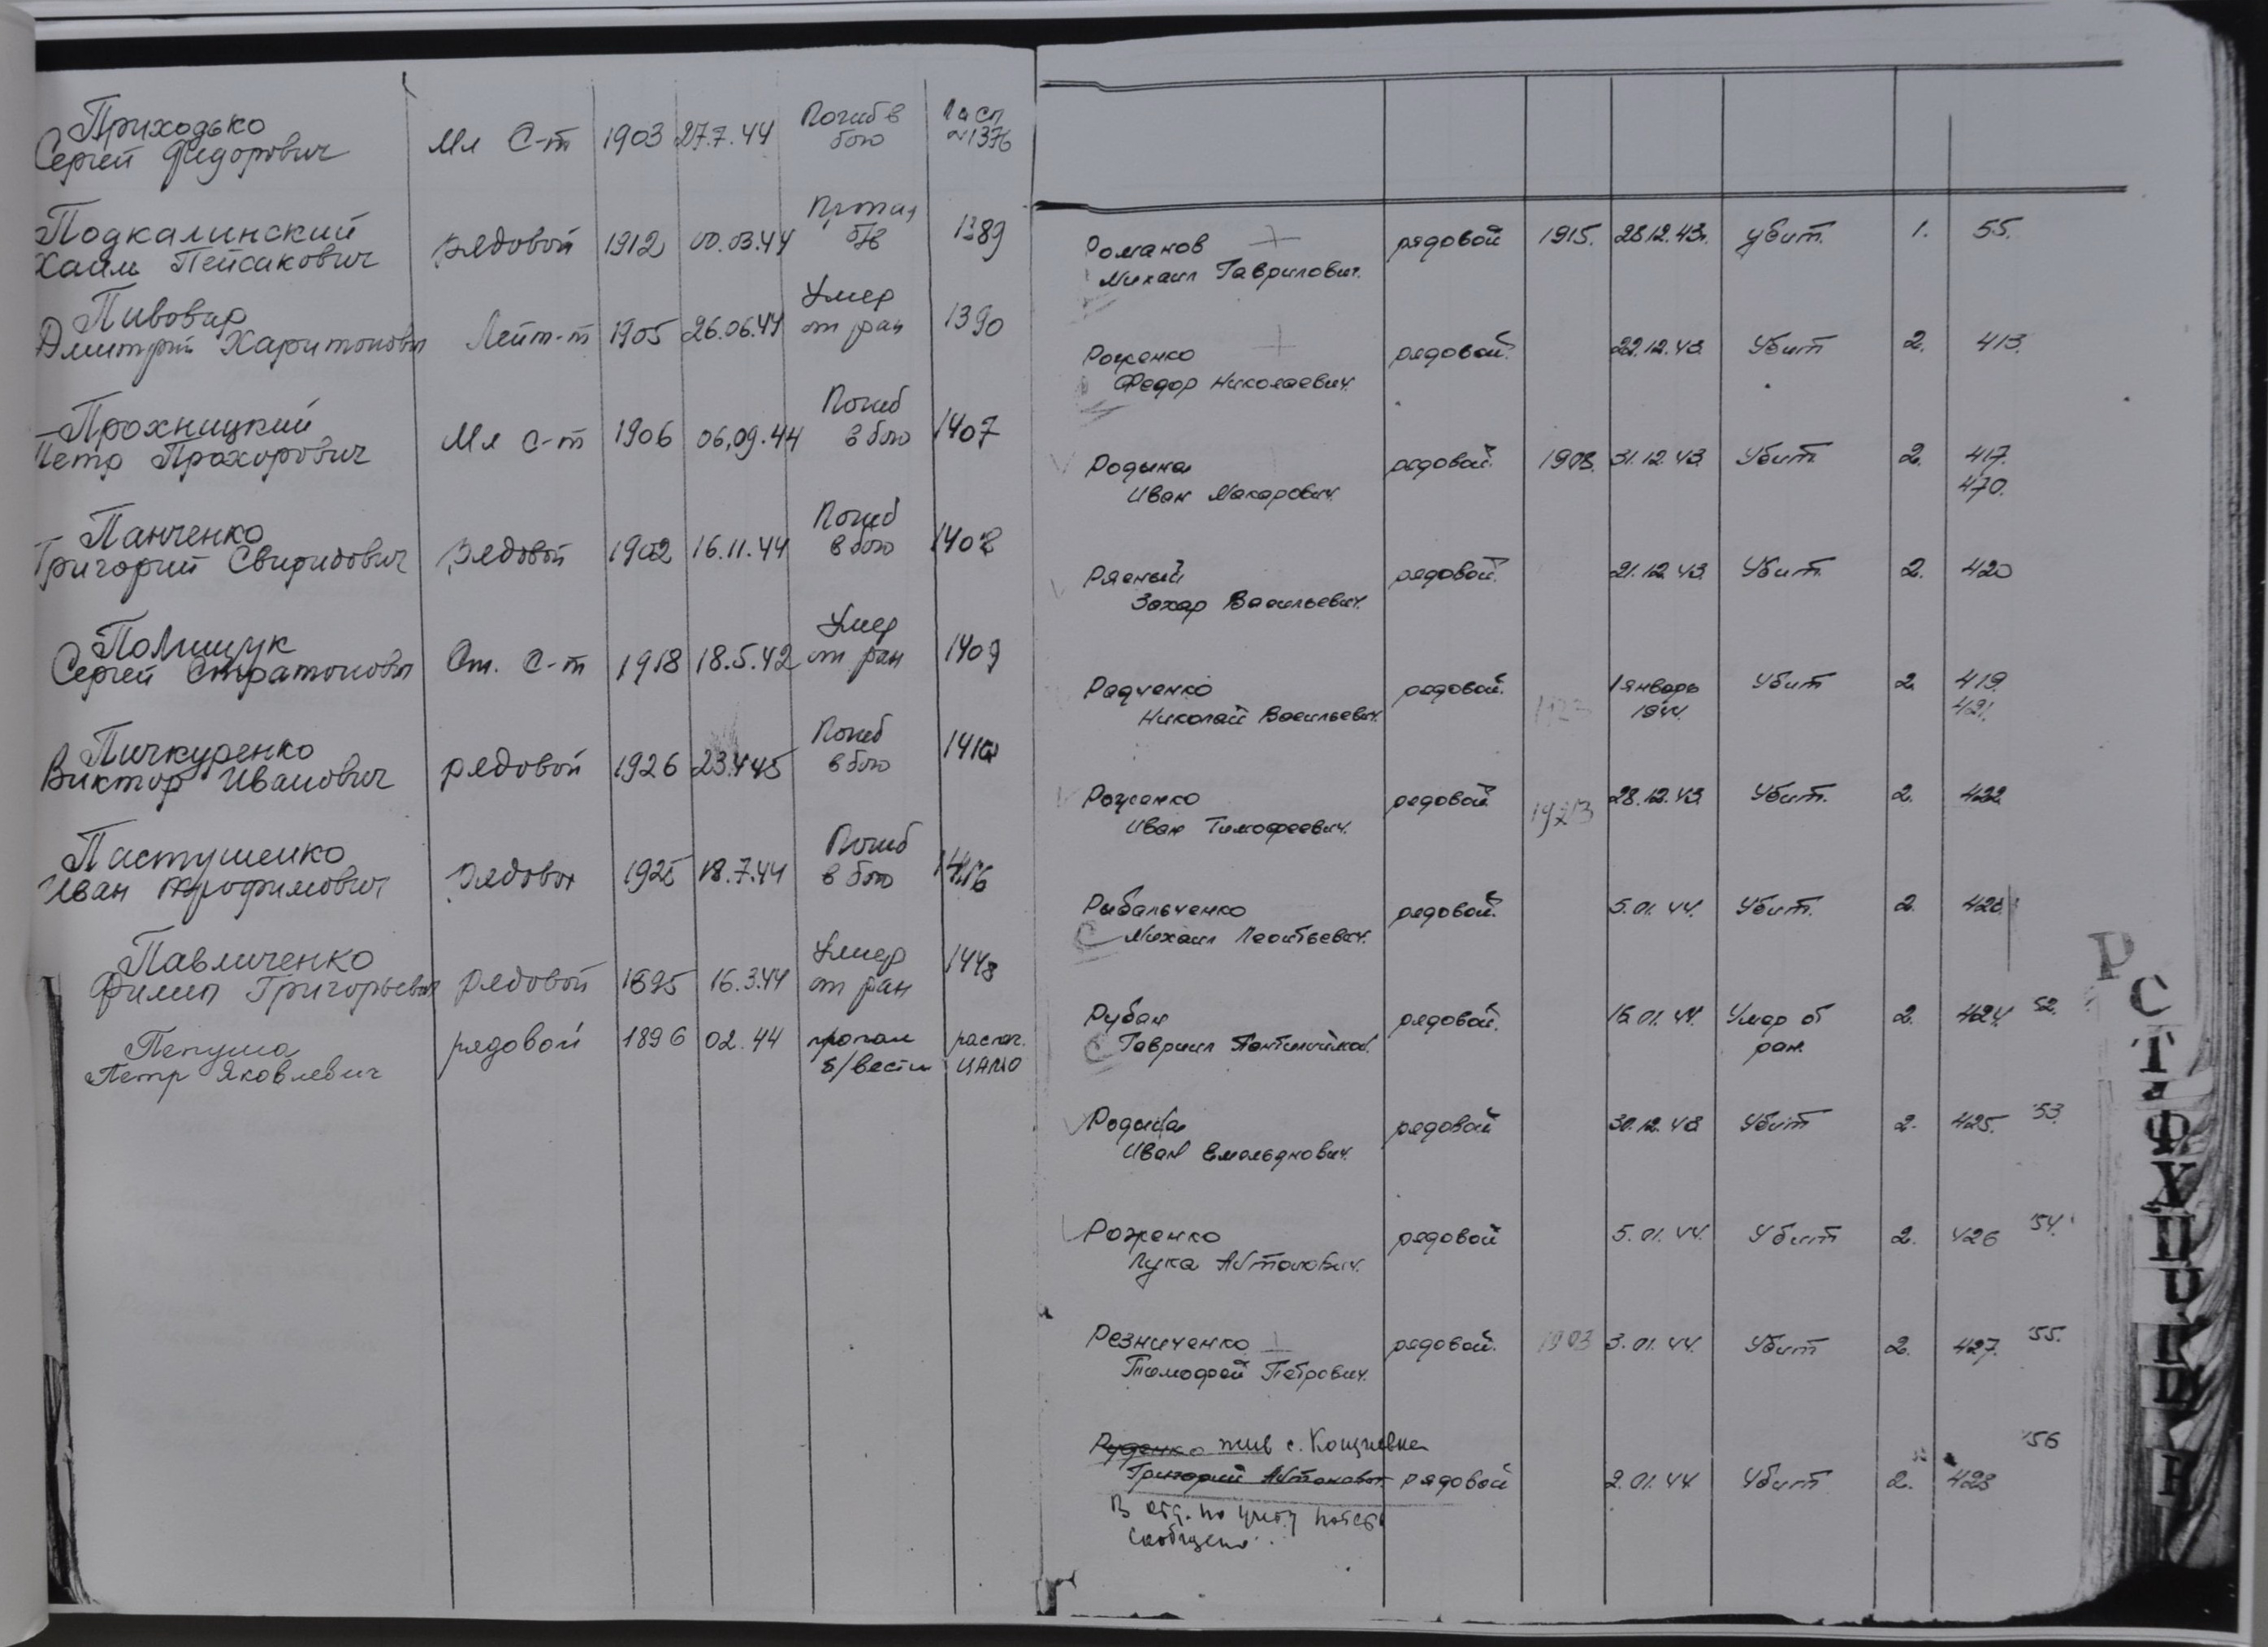 Приходько
Сергей Федорович Мл С-т 1903 27.7.44 Погиб в бою №1376
Подкалинский
Хаим Пейсакович рядовой 1912 00.03.44 Пропал б/в 1389
Пивовар
Дмитрий Харитонович Лейт-т 1905 26.06.44 Умер от ран 1390
Прохницкий
Петр Прохорович Мл С-т 1906 06,09.44 Погиб в бою 1407
Панченко
Григорий Свиридович рядовой 1902 16.11.44 Погиб в бою 1408
Полищук
Сергей Стратонович Ст. С-т 1918 18.5.42 Умер от ран 1409
Пичкуренко
Виктор Иванович рядовой 1926 23.4.45 Погиб в бою
Пастушенко
Иван Трофимович рядовой 1925 18.7.44 Погиб в бою
Павличенко
Филип Григорьевич рядовой 1895 16.3.44 Умер от ран 1448
Пепуша
Петр Яковлевич рядовой 1896 02.44 пропал б/вести ЦАМО
Романов рядовой 1915. 28.12.43. убит. 1. 55.
Михаил Гаврилович.
Роженко рядовой. 22.12.43. Убит 2. 413.
Федор Николаевич.
Родына рядовой. 1908. 31.12.43. Убит. 2. 417.
Иван Макарович. 470.
Рясный рядовой. 21.12.43. Убит. 2. 420
Захар Васильевич.
Радченко рядовой. 1 январь Убит 2. 419.
Николай Васильевич. 1944. 421.
Роженко рядовой 1923 28.12.43. Убит. 2. 422.
Иван Тимофеевич.
Рыбальченко рядовой. 5.01.44. Убит. 2. 423
Михаил Леонтьевич.
Рубан рядовой. 15.01.44. Умер от 2. 424. 52.
Гавриил ран.
Родына рядовой 30.12.43 Убит 2. 425. 53.
Иван Емельянович.
Роженко рядовой 5.01.44. Убит 2. 426 54.
Лука Автонович.
Резниченко рядовой. 1903 3.01.44. Убит 2. 427. 55.
Тимофей Петрович.
Руденко жив с. 56
Григорий Автонович рядовой 2.01.44 Убит 2. 428
В отд. по учету потерь
сообщено.
Р
С
Т
Ф
Х